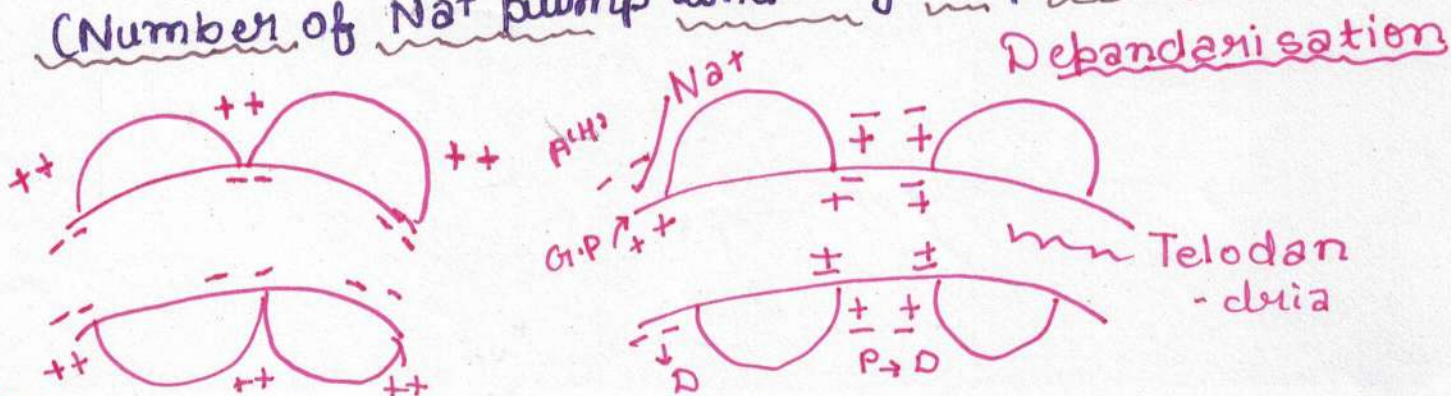 (Number of Na+ pump
Debandarisation
++ ++ ++
-- -- --
Na+
G.P ++
- + - +
Telodan
-dria
-- -- --
++ ++ ++
± ±
D
P→D